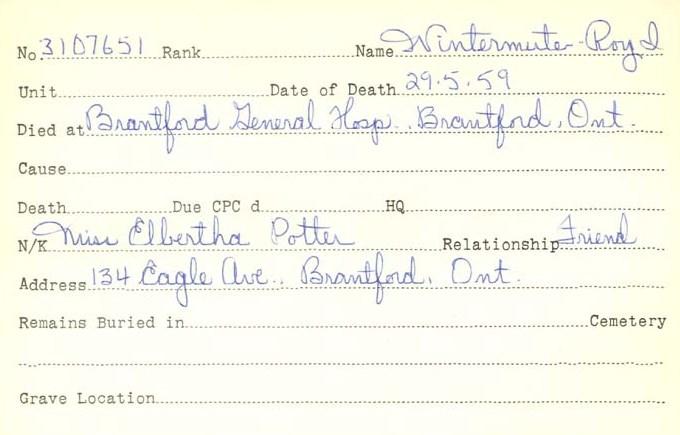 No. 3107651 Rank Name Wintermute Roy I
Unit Date of Death 29.5.59
Died at Brantford General Hosp., Brantford, Ont.
Cause
Death Due CPC d HQ
N/K Miss Elbertha Potter Relationship Friend
Address 134 Eagle Ave., Brantford, Ont.
Remains Buried in Cemetery
Grave Location